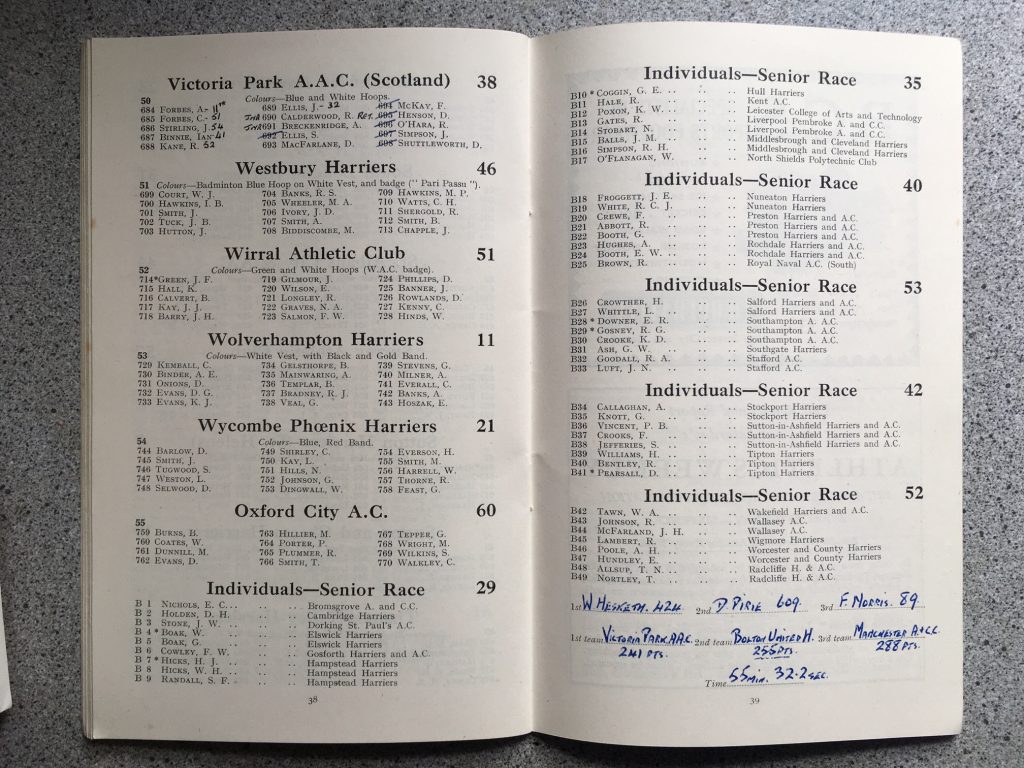 Victoria Park A.A.C. (Scotland) 38
50 Colours—Blue and White Hoops.
684 Forbes, A.- 11th 689 Ellis, J.- 32 694 McKay, F.
685 Forbes, C.- 51 690 Calderwood, R. Ret. 695 Henson, D.
686 Stirling, J. 54 691 Breckenridge, A. 696 O'Hara, R.
687 Binnie, Ian- 41 692 Ellis, S. 697 Simpson, J.
688 Kane, R. 52 693 MacFarlane, D. 698 Shuttleworth, D.
Westbury Harriers 46
51 Colours—Badminton Blue Hoop on White Vest, and badge (" Pari Passu ").
699 Court, W. J. 704 Banks, R. S. 709 Hawkins, M. P.
700 Hawkins, I. B. 705 Wheeler, M. A. 710 Watts, C. H.
701 Smith, J. 706 Ivory, J. D. 711 Shergold, R.
702 Tuck, J. B. 707 Smith, A. 712 Smith, B.
703 Hutton, J. 708 Biddiscombe, M. 713 Chapple, J.
Wirral Athletic Club 51
52 Colours—Green and White Hoops (W.A.C. badge).
714*Green, J. F. 719 Gilmour, J. 724 Phillips, D.
715 Hall, K. 720 Wilson, E. 725 Banner, J.
716 Calvert, B. 721 Longley, R. 726 Rowlands, D.
717 Kay, J. J. 722 Graves, N. A. 727 Kenny, C.
718 Barry, J. H. 723 Salmon, F. W. 728 Hinds, W.
Wolverhampton Harriers 11
53 Colours—White Vest, with Black and Gold Band.
729 Kemball, C. 734 Gelsthorpe, B. 739 Stevens, G.
730 Binder, A. E. 735 Mainwaring, A. 740 Milner, A.
731 Onions, D. 736 Templar, B. 741 Everall, C.
732 Evans, D. G. 737 Bradney, R. J. 742 Banks, A.
733 Evans, K. J. 738 Veal, G. 743 Hoszak, E.
Wycombe Phœnix Harriers 21
54 Colours—Blue, Red Band.
744 Barlow, D. 749 Shirley, C. 754 Everson, H.
745 Smith, J. 750 Kay, L. 755 Smith, M.
746 Tugwood, S. 751 Hills, N. 756 Harrell, W.
747 Weston, L. 752 Johnson, G. 757 Thorne, R.
748 Selwood, D. 753 Dingwall, W. 758 Feast, G.
Oxford City A.C. 60
55
759 Burns, B. 763 Hillier, M. 767 Tepper, G.
760 Coates, W. 764 Porter, P. 768 Wright, M.
761 Dunnill, M. 765 Plummer, R. 769 Wilkins, S.
762 Evans, D. 766 Smith, T. 770 Walkley, C.
Individuals—Senior Race 29
B 1 Nichols, E. C... .. .. Bromsgrove A. and C.C.
B 2 Holden, D. H. .. .. Cambridge Harriers
B 3 Stone, J. W... .. .. Dorking St. Paul's A.C.
B 4 * Boak, W. .. .. Elswick Harriers
B 5 Boak, G. .. .. Elswick Harriers
B 6 Cowley, F. W. .. .. Gosforth Harriers and A.C.
B 7 * Hicks, H. J. .. .. Hampstead Harriers
B 8 Hicks, W. H. .. .. .. Hampstead Harriers
B 9 Randall, S. F. .. .. .. Hampstead Harriers
38
Individuals—Senior Race 35
B10 * Coggin, G. E. .. .. Hull Harriers
B11 Hale, R. .. .. Kent A.C.
B12 Poxon, K. W. .. .. Leicester College of Arts and Technology
B13 Gates, R. .. .. Liverpool Pembroke A. and C.C.
B14 Stobart, N. .. .. Liverpool Pembroke A. and C.C.
B15 Balls, J. M. .. .. Middlesbrough and Cleveland Harriers
B16 Simpson, R. H. .. .. Middlesbrough and Cleveland Harriers
B17 O'Flanagan, W. .. .. North Shields Polytechnic Club
Individuals—Senior Race 40
B18 Froggett, J. E. .. .. Nuneaton Harriers
B19 White, R. C. J. .. .. Nuneaton Harriers
B20 Crewe, F. .. .. Preston Harriers and A.C.
B21 Abbott, R. .. .. Preston Harriers and A.C.
B22 Booth, G. .. .. Preston Harriers and A.C.
B23 Hughes, A. .. .. Rochdale Harriers and A.C.
B24 Booth, E. W. .. .. Rochdale Harriers and A.C.
B25 Brown, R. .. .. Royal Naval A.C. (South)
Individuals—Senior Race 53
B26 Crowther, H. .. .. Salford Harriers and A.C.
B27 Whittle, L. .. .. Salford Harriers and A.C.
B28 * Downer, E. R. .. .. Southampton A. A.C.
B29 * Gosney, R. G. .. .. Southampton A. A.C.
B30 Crooke, K. D. .. .. Southampton A. A.C.
B31 Ash, G. W. .. .. Southgate Harriers
B32 Goodall, R. A. .. .. Stafford A.C.
B33 Luft, J. N. .. .. Stafford A.C.
Individuals—Senior Race 42
B34 Callaghan, A. .. .. Stockport Harriers
B35 Knott, G. .. .. Stockport Harriers
B36 Vincent, P. B. .. .. Sutton-in-Ashfield Harriers and A.C.
B37 Crooks, F. .. .. .. Sutton-in-Ashfield Harriers and A.C.
B38 Jefferies, S. .. .. .. Sutton-in-Ashfield Harriers and A.C.
B39 Williams, H. .. .. Tipton Harriers
B40 Bentley, R. .. .. .. Tipton Harriers
B41 * Pearsall, D. .. .. Tipton Harriers
Individuals—Senior Race 52
B42 Tawn, W. A. .. .. Wakefield Harriers and A.C.
B43 Johnson, R. .. .. Wallasey A.C.
B44 McFarland, J. H. .. .. Wallasey A.C.
B45 Lambert, R. .. .. Wigmore Harriers
B46 Poole, A. H. .. .. Worcester and County Harriers
B47 Hundley, E. .. .. Worcester and County Harriers
B48 Allsup, T. N. .. .. Radcliffe H. & A.C.
B49 Nortley, T. .. .. Radcliffe H. & A.C.
1st W Hesketh. 424 2nd D Pirie 609. 3rd F. Norris. 89
1st team Victoria Park A.A.C. 2nd team Bolton United H. 3rd team Manchester A & C.C.
241 pts. 255 pts. 288 pts.
Time 55 min. 32.2 sec.
39